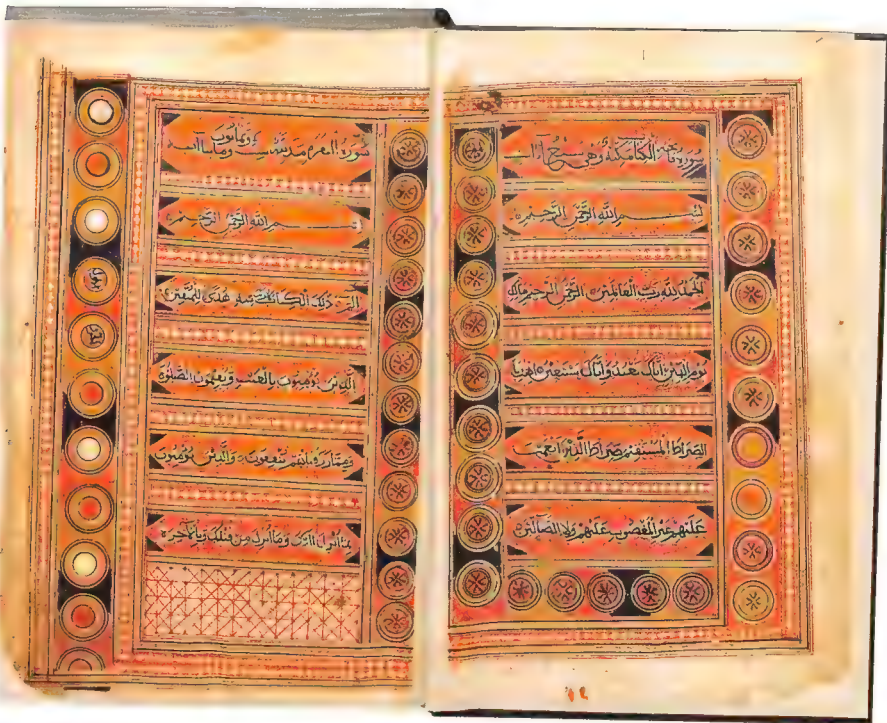 سورة فاتحة الكتاب مكية وهي سبع آيات
بسم الله الرحمن الرحيم
الحمد لله رب العالمين الرحمن الرحيم مالك
يوم الدين اياك نعبد واياك نستعين اهدنا
الصراط المستقيم صراط الذين انعمت
عليهم غير المغضوب عليهم ولا الضالين
سورة البقرة مدنية وهي مايتان و آية
بسم الله الرحمن الرحيم
الم ذلك الكتاب لا ريب فيه هدى للمتقين
الذين يؤمنون بالغيب ويقيمون الصلوة
ومما رزقناهم ينفقون والذين يؤمنون
بما انزل اليك وما انزل من قبلك وبالآخرة